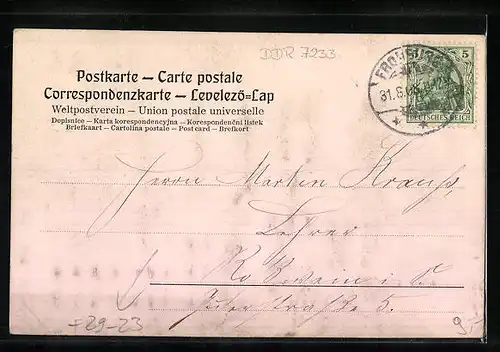 DDR 7233
Postkarte — Carte postale
Correspondenzkarte — Levelező=Lap
Weltpostverein — Union postale universelle
Dopisnice — Karta korespondencyjna — Korespondenční listek
Briefkaart — Cartolina postale — Post card — Brefkort
5
DEUTSCHES REICH
Herrn Martin Krauß,
Lehrer
Roßwein i. S.
straße 5.
=29-23
9,-